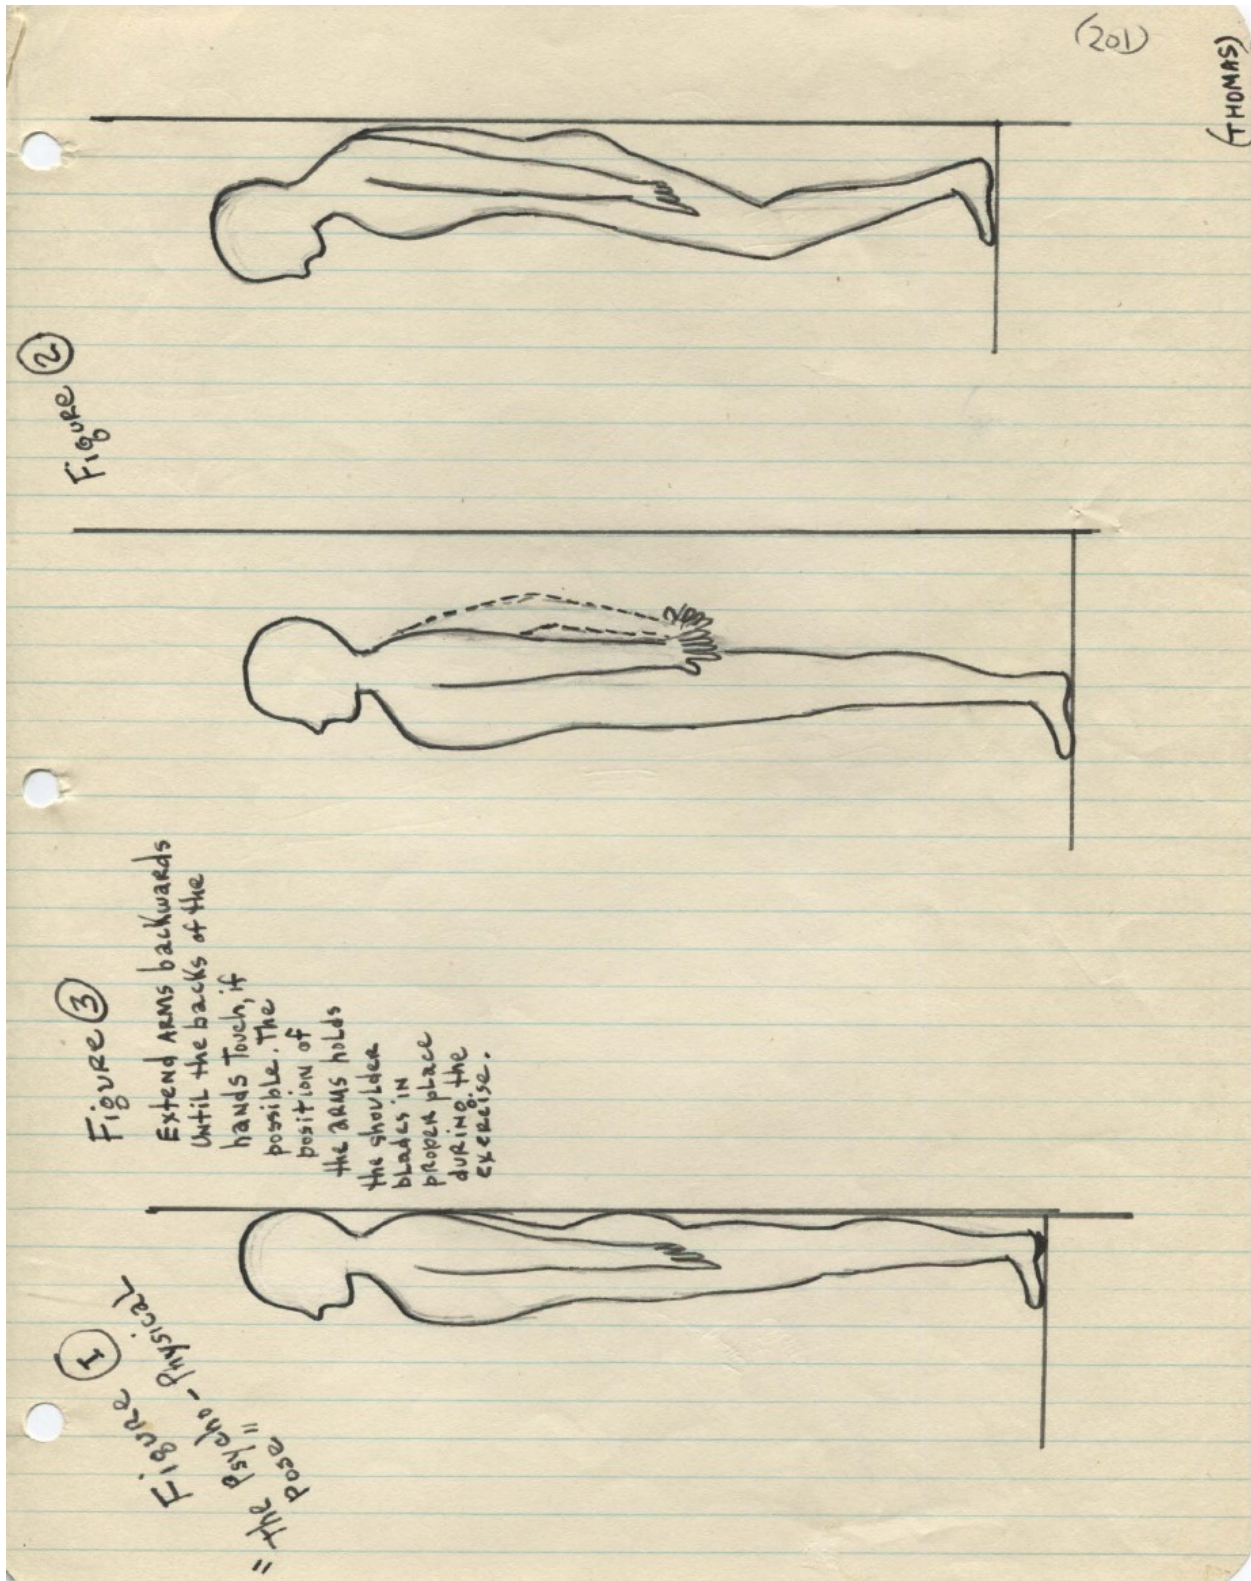 (201)
(THOMAS)
Figure 2
Figure 3
Extend ARMS backwards
Until the backs of the
hands Touch, if
possible. The
position of
the arms holds
the shoulder
blades in
proper place
during the
exercise.
Figure 1
= the Psycho-Physical
Pose =